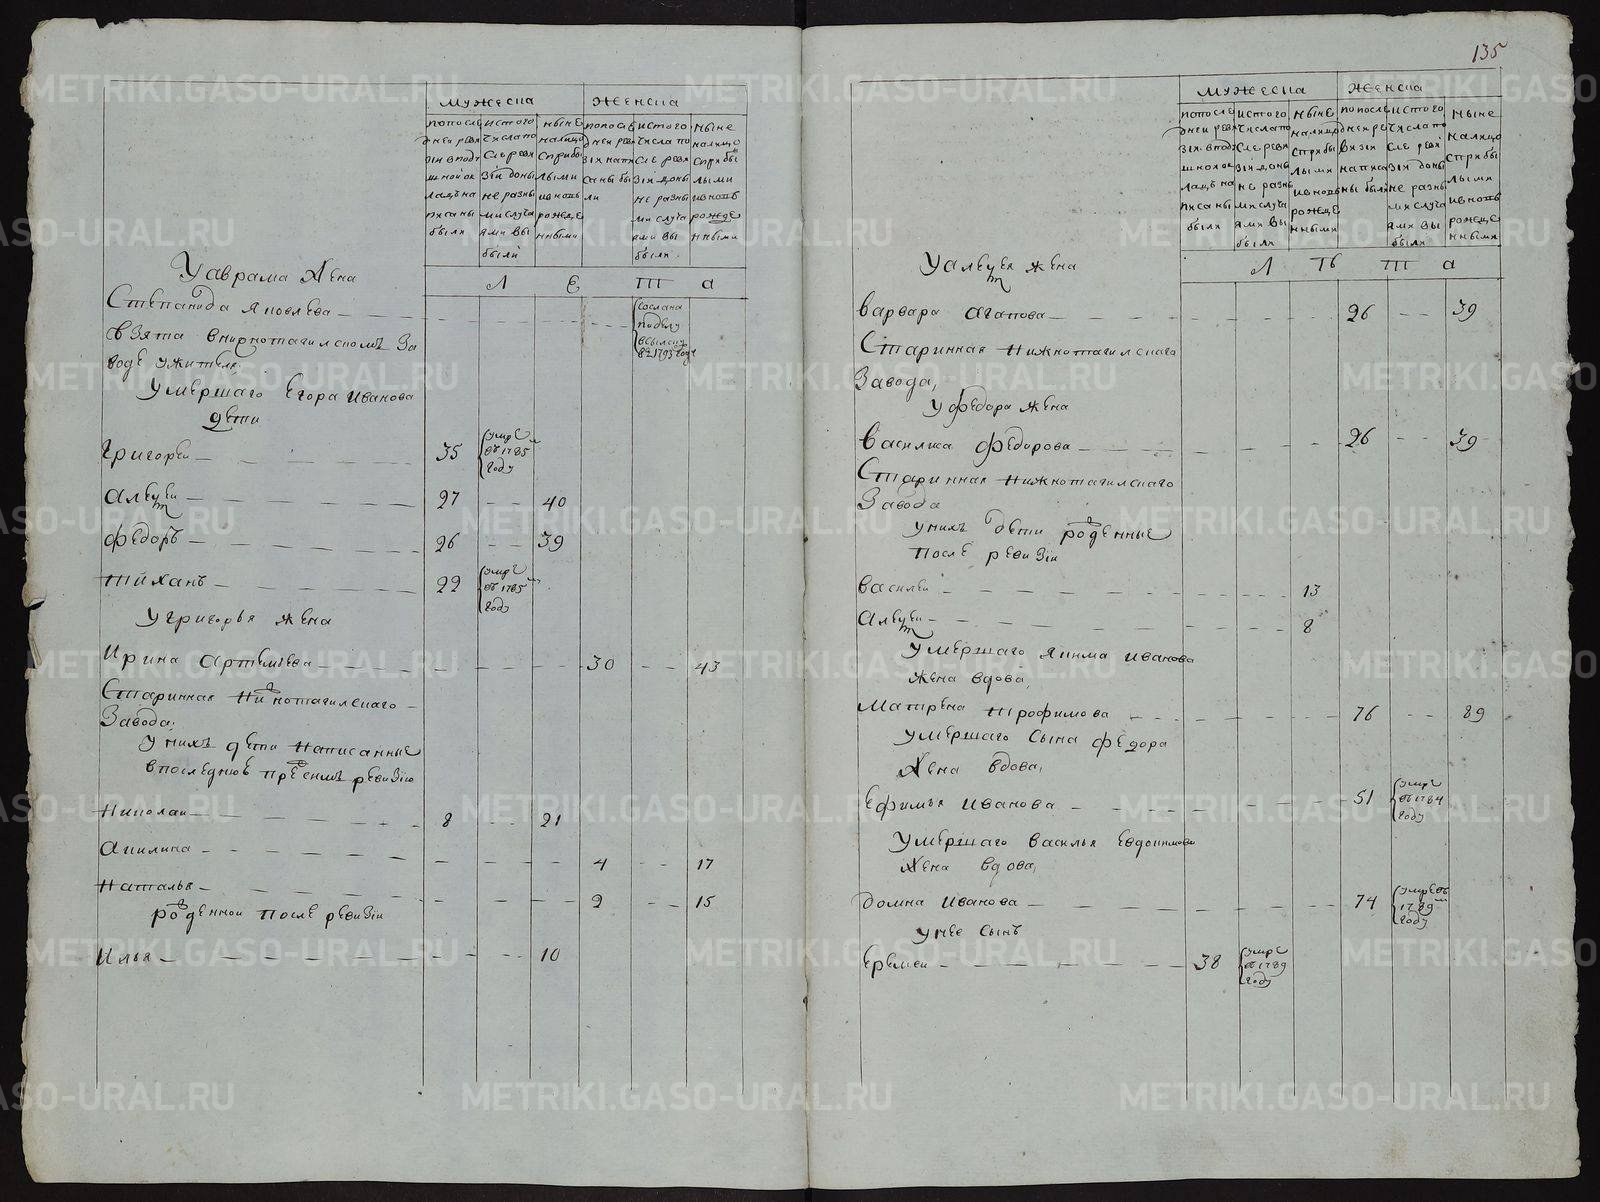 135
мужеска
женска
попосле
дней реви
зіи вподу
шной ок
ладъ на
писаны
были
истого
числа по
сле реви
зіи доны
не разны
ми случа
ями вы
были
ныне
налицо
сприбы
лыми
ивновь
рожде
нными
попосле
дней реви
зіи напи
саны бы
ли
истого
числа по
сле реви
зіи доны
не разны
ми случа
ями вы
были
ныне
налицо
сприбы
лыми
ивновь
рожде
нными
Л е т а
Уаврама Жена
Степанида Яковлева
сослана
поделу
вссылку
в 1793 году
Взята внижнотагилскомъ За
воде ужителя,
Умершаго Егора Иванова
дети
Григореи 35 умре
въ 1785м
году
Алеѯеи 27 40
Федоръ 26 39
Тиханъ 22 умре
въ 1785м
году
Угригорья жена
Ирина Артемьева 30 43
Старинная нижнотагилскаго
Завода,
Унихъ дети написанные
впоследнюю пред симъ ревизію
Николаи 8 21
Акилина 4 17
Наталья 2 15
рожденнои после ревизіи
Илья 10
мужеска
женска
попосле
дней реви
зіи вподу
шной ок
ладъ на
писаны
были
истого
числа по
сле реви
зіи доны
не разны
ми случа
ями вы
были
ныне
налицо
сприбы
лыми
ивновь
рожде
нными
попосле
дней ре
визіи
написа
ны были
истого
числа по
сле реви
зіи доны
не разны
ми случа
ями вы
были
ныне
налицо
сприбы
лыми
ивновь
рожде
нными
Л ѣ т а
Уалеѯея жена
Варвара Агапова 26 39
Старинная Нижнотагилскаго
Завода,
У федора жена
Василиса Федорова 26 39
Старинная нижнотагилскаго
Завода
унихъ дети рожденные
после ревизіи
Василеи 13
Алеѯеи 8
Умершаго Якима Иванова
жена вдова,
Матрена Трофимова 76 89
Умершаго сына Федора
Жена вдова,
Ефимья Иванова 51 умре
въ 1784
году
Умершаго Василья Евдокимова
Жена вдова,
Домна Иванова 74 умре въ
1789м
году
унее сынъ
Еремеи 38 умре
въ 1789
году
METRIKI.GASO-URAL.RU